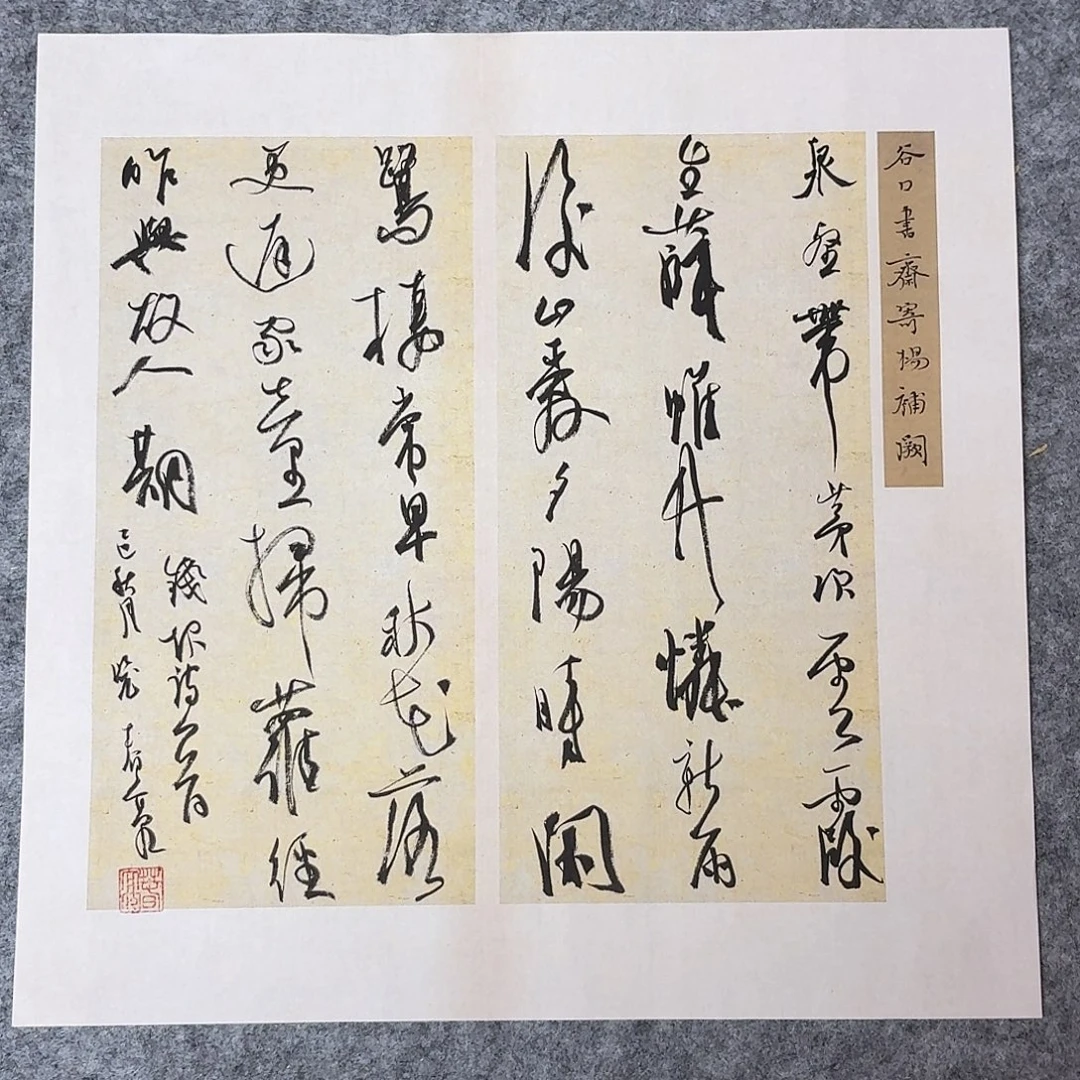 谷口書齋寄楊補闕
泉壑帶茅茨雲霞
生薜帷竹憐新雨
後山愛夕陽時閑
鷺棲常早秋花落
更遲家童掃蘿徑
昨與故人期
錢起詩
乙巳秋月